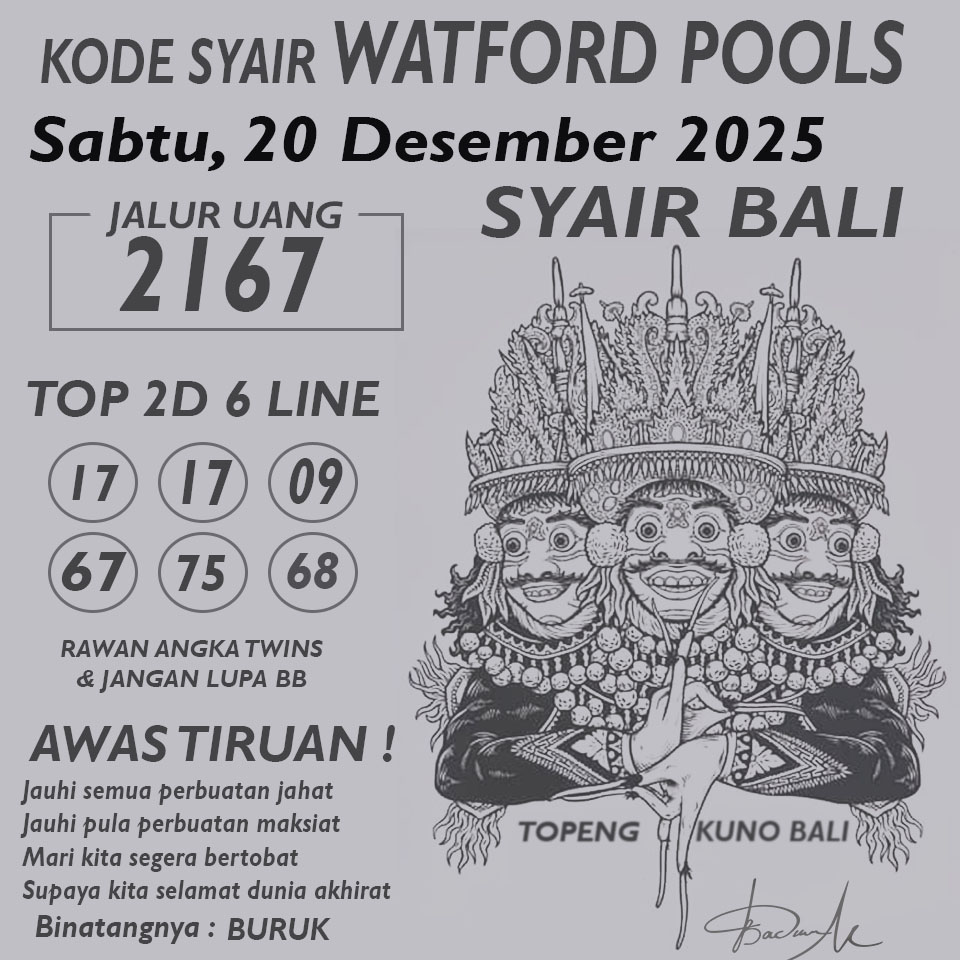 KODE SYAIR WATFORD POOLS
Sabtu, 20 Desember 2025
SYAIR BALI
JALUR UANG
2167
TOP 2D 6 LINE
17 17 09
67 75 68
RAWAN ANGKA TWINS
& JANGAN LUPA BB
AWAS TIRUAN !
Jauhi semua perbuatan jahat
Jauhi pula perbuatan maksiat
Mari kita segera bertobat
Supaya kita selamat dunia akhirat
Binatangnya : BURUK
TOPENG KUNO BALI